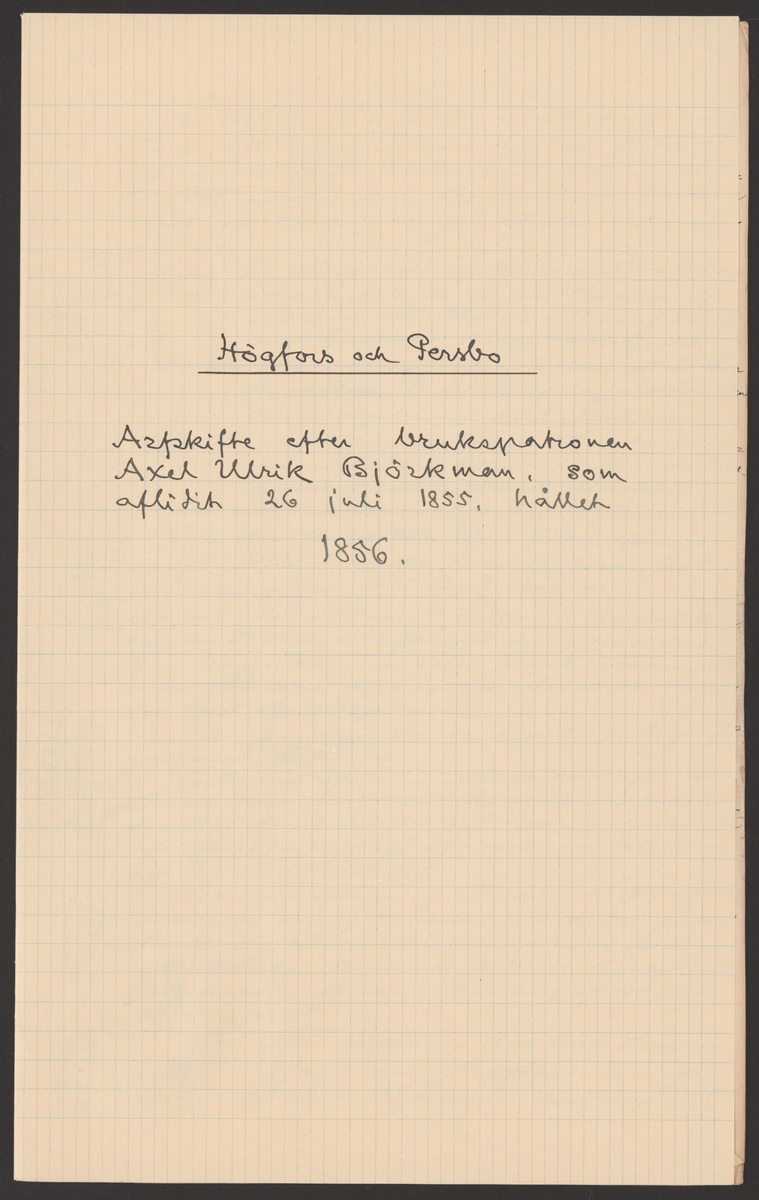 Högfors och Persbo
Arfskifte efter brukspatronen
Axel Ulrik Björkman, som
aflidit 26 juli 1855, hållet
1856.